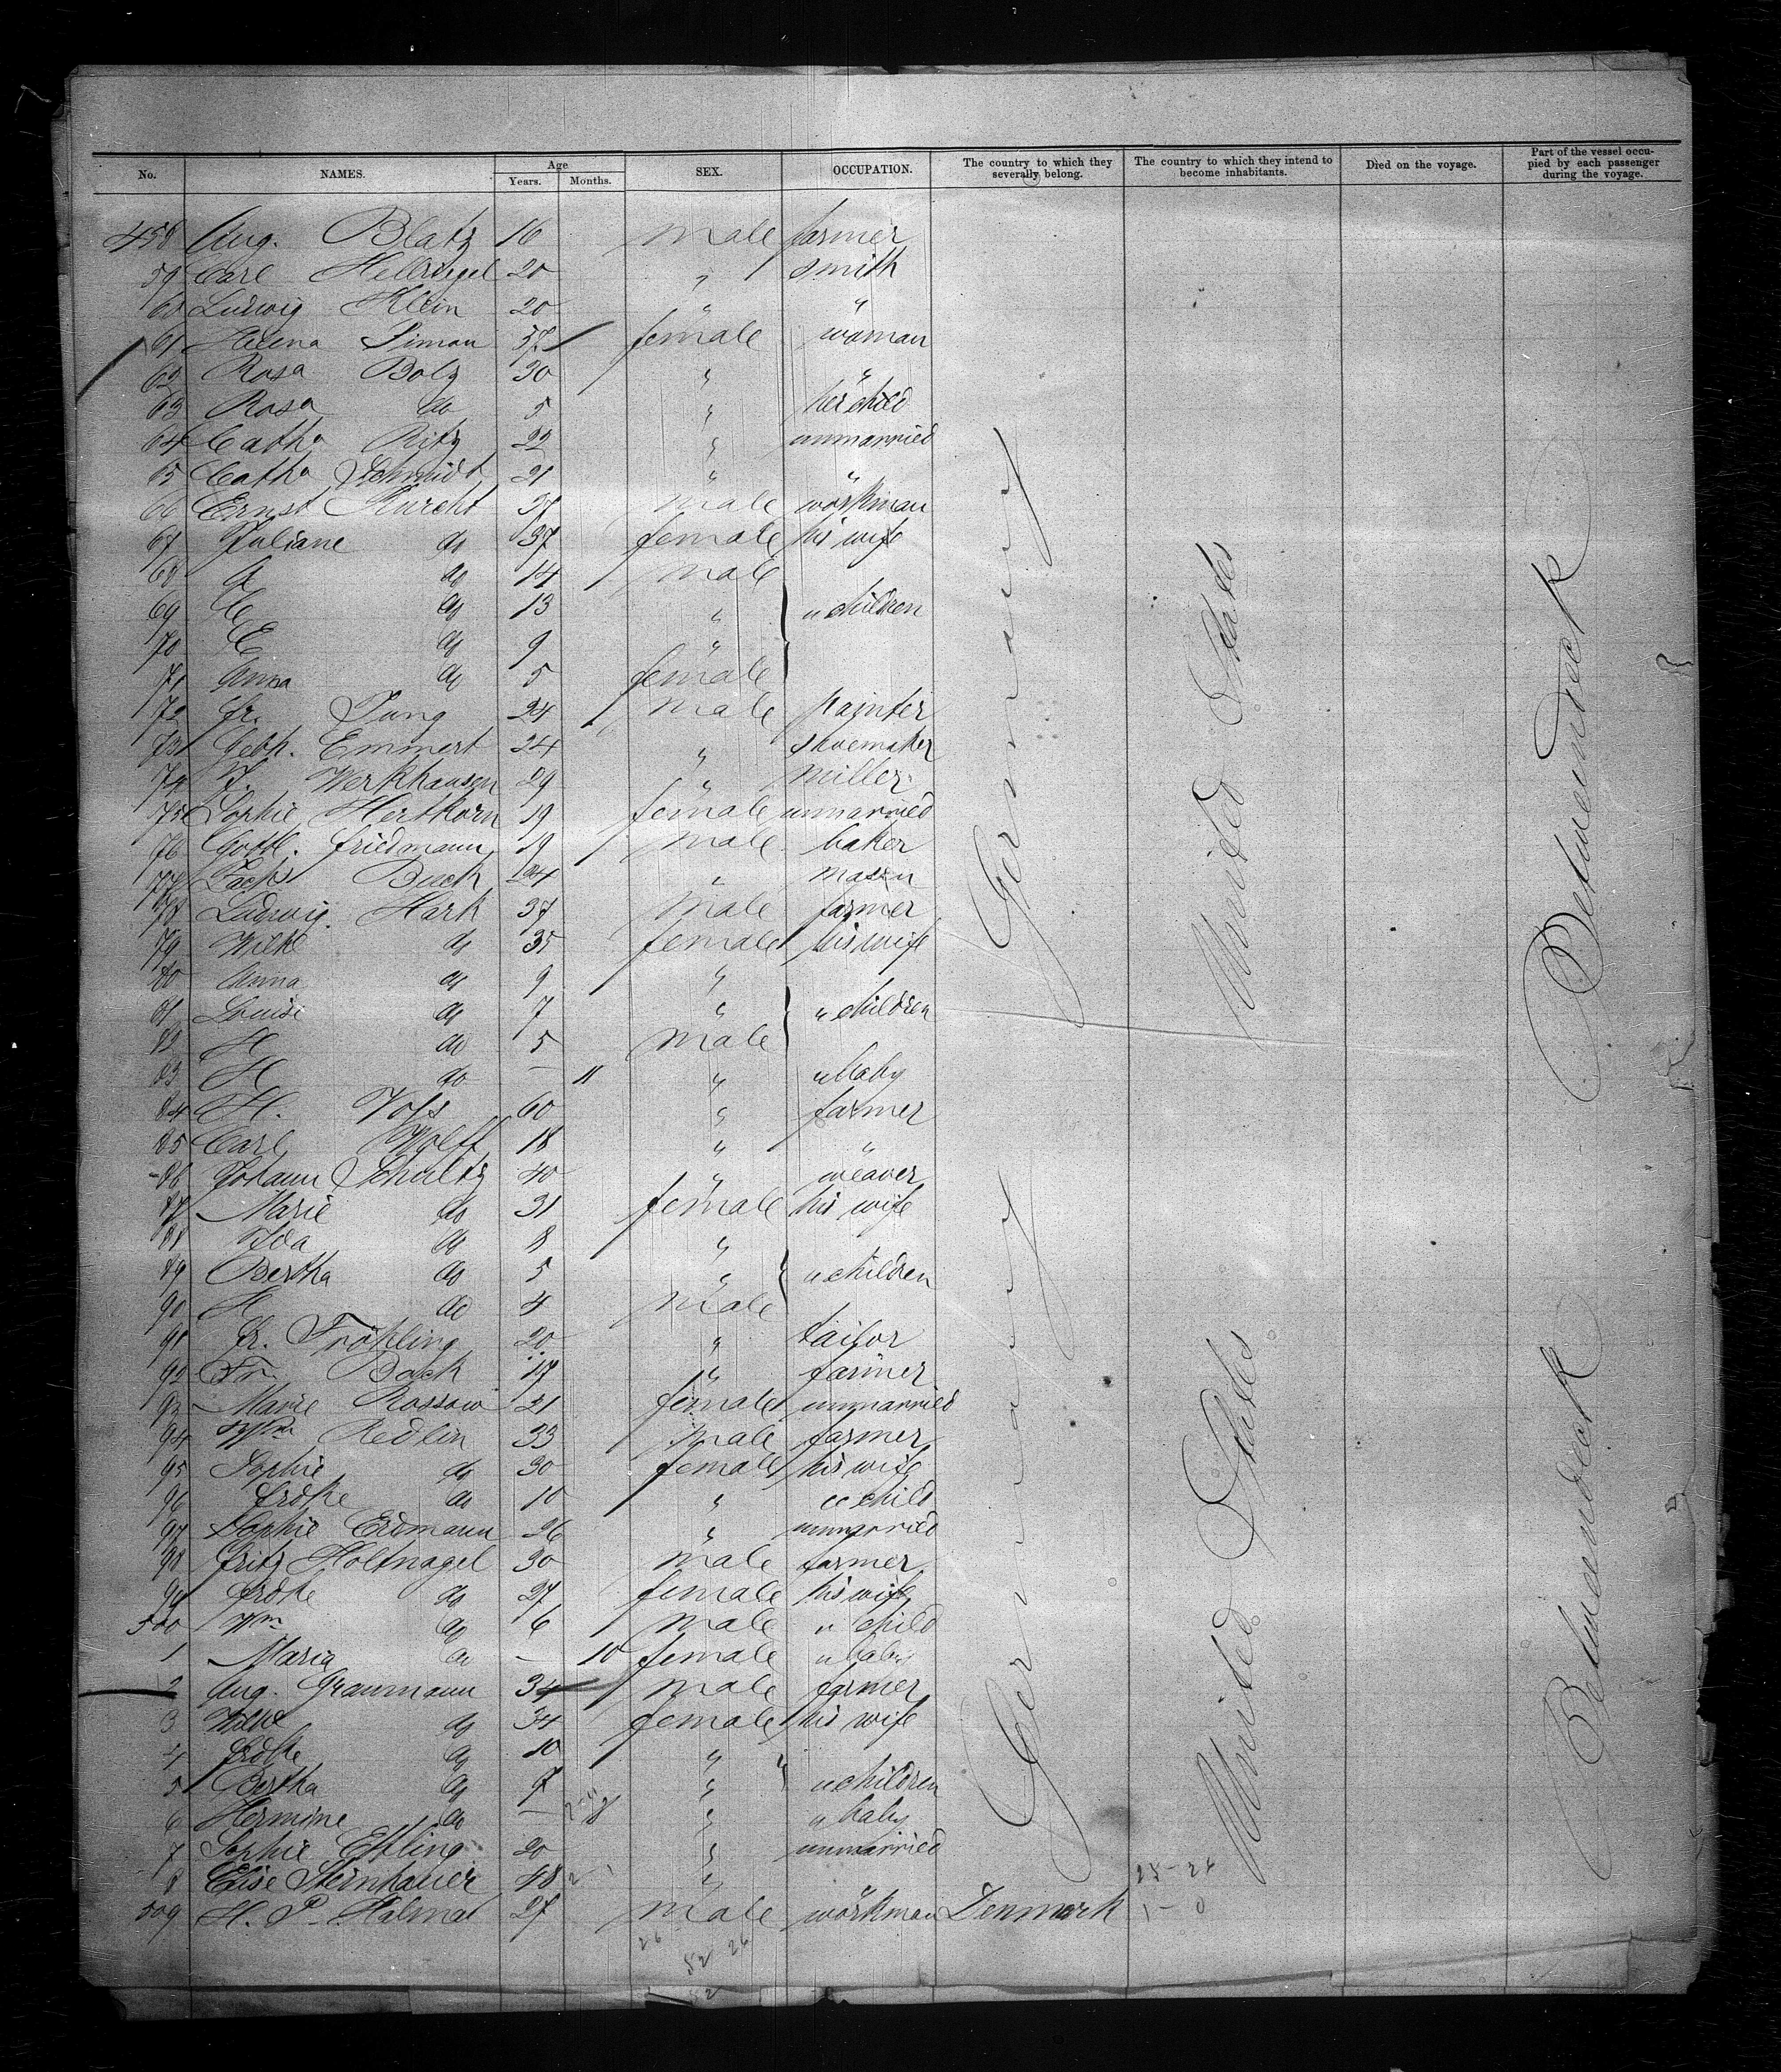 No. NAMES. Age Years. Months. SEX. OCCUPATION. The country to which they severally belong. The country to which they intend to become inhabitants. Died on the voyage. Part of the vessel occupied by each passenger during the voyage.
458 Aug. Blatz 16 male farmer
59 Carl Hellriegel 20 " smith
60 Ludwig Klein 20 " "
61 Helena Simon 57 female woman
62 Rosa Bolz 30 " "
63 Rosa do 5 " her child
64 Catha Ritz 22 " unmarried
65 Catha Schmidt 21 " "
66 Ernst Knecht 37 male workman
67 Juliane do 37 female his wife
68 A do 14 male
69 do 13 " " children
70 E do 9 "
71 Anna do 5 female
72 Fr. Jung 24 male painter
73 Gebh. Emmert 24 " shoemaker
74 F. Werkhausen 29 " miller
75 Sophie Hertkorn 19 female unmarried
76 Gottl. Friedmann 19 male baker
77 Buck 24 " mason
78 Ludwig Hark 37 male farmer
79 Wilhe do 35 female his wife
80 Anna do 9 "
81 Louise do 7 " " children
82 H do 5 male
83 H do — 11 " " baby
84 H. Voss 60 " farmer
85 Carl Wolff 18 " "
86 Johann Schultz 40 " weaver
87 Marie do 31 female his wife
88 Ida do 8 "
89 Bertha do 5 " " children
90 H do 4 male
91 Fr. Fröhling 20 " tailor
92 Fr. Bock 17 " farmer
93 Marie Rossow 21 female unmarried
94 Wm Redlin 33 male farmer
95 Sophie do 30 female his wife
96 Frdke do 10 " " child
97 Sophie Erdmann 26 " unmarried
98 Fritz Holtnagel 30 male farmer
99 Frdke do 27 female his wife
500 Wm do 6 male " child
1 Maria do — 10 female " baby
2 Aug. Graumann 34 male farmer
3 Wilhe do 34 female his wife
4 Frdke do 10 " "
5 Bertha do 7 " " children
6 Hermine do — 8 " " baby
7 Sophie Essling 20 " unmarried
8 Elise Steinhauer 48 " "
509 H. P. Halmal 27 male workman Denmark
Germany
United States
Betweendeck
Germany
United States
Betweendeck
1 - 0
26 26
52
52